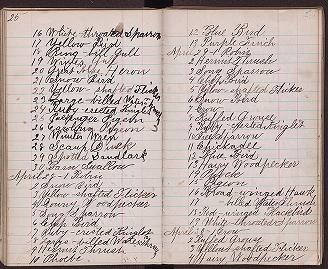 26
16 White-throated Sparrow
17 Yellow Bird
18 Ring-bill Gull
19 Winter
20 Great Blue Heron
21 Snow Bird
22 Yellow-shafted Flicker
23 Large-billed Water Thrush
24 Ruby-crested Kinglet
25 Passenger Pigeon
26 Heron
27 Winter Wren
28 Scaup Duck
29 Spotted Sandlark
30 Barn Swallow
April 27 - 1 Robin
2 Snow Bird
3 Yellow-shafted Flicker
4 Downy Woodpecker
5 Song Sparrow
6 Chip Bird
7 Ruby-crested Kinglet
8 Large-billed Water Thrush
9 Hermit Thrush
10 Phoebe
12 Blue Bird
13 Purple Finch
April 29 - 1 Robin
2 Hermit Thrush
3 Song Sparrow
4 Chip Bird
5 Yellow-shafted Flicker
6 Snow Bird
7 Crow
8 Ruffed Grouse
9 Ruby-crested Kinglet
10 Sparrow
11 Chickadee
12 Blue Bird
13 Hairy Woodpecker
14
15 Pigeon
16 Broad-winged Hawk
17 billed Water Thrush
18 Red-winged Blackbird
19 White-throated Sparrow
April 28 - 1 Crow
2 Ruffed Grouse
3 Yellow-shafted Flicker
4 Hairy Woodpecker